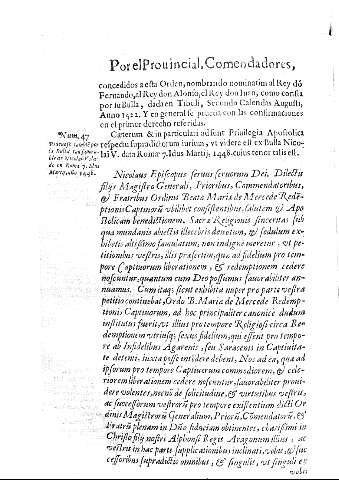 Por el Prouincial, Comendadores,
concedidos a esta Orden, nombrando nominatim al Rey dõ
Fernando, al Rey don Alonso, el Rey don Iuan, como consta
por su Bulla, dada en Tibuli, Secundo Calendas Augusti,
Anno 1422. Y en general se prueua con las confirmaciones
en el primer derecho referidas.
Num. 47
Cæterum & in particulari adsunt Priuilegia Apostolica
respectu supradictorum iurium, vt videre est ex Bulla Nico-
lai V. data Romæ 7. Idus Martij, 1448. cuius tenor talis est.
Nicolaus Episcopus seruus seruorum Dei, Dilectis
filijs Magistro Generali, Prioribus, Commendatoribus,
& Fratribus Ordinis Beatæ Mariæ de Mercede Redẽ-
ptionis Captiuorũ vbilibet consistentibus, salutem & Apo
stolicam benedictionem. Sacra Religionis sinceritas sub
qua mundanis abiectis illecebris deuotum, & sedulum ex-
hibetis altissimo famulatum, non indigne meretur, vt pe-
titionibus vestris, illis præsertim, quæ ad fidelium pro tem
pore Captiuorum liberationem, & redemptionem cedere
noscuntur, quantum cum Deo possumus fauorabiliter an-
nuamus. Cum itaq; sicut exhibita nuper pro parte vestra
petitio continebat, Ordo B. Mariæ de Mercede Redemp-
tionis Captiuorum, ad hoc principaliter canonicè dudum
institutus fuerit, vt illius pro tempore Religiosi circa Re-
demptionem vtriusq; sexus fidelium, qui essent pro tempo
re ab Infidelibus Agarenis, seu Saracenis in Captiuita-
te detenti, iuxta posse intendere debent, Nos ad ea, quæ ad
ipsorum pro tempore Captiuorum commodiorem, & cele-
riorem liberationem cedere noscuntur, fauorabiliter proui-
dere volentes, necnõ de solicitudine, & virtutibus vestris,
ac successorum vestrorũ pro tempore existentium dicti Or
dinis Magistrorũ Generalium, Priorũ, Cõmendatorũ, &
Fratrũ plenam in Dño fiduciam obtinentes, charissimi in
Christo filij nostri Alphonsi Regis Aragonum illius, ac
vestris in hac parte supplicationibus inclinati, vobis, & suc
cessoribus supradictis omnibus, & singulis, vt singuli ex
vobis